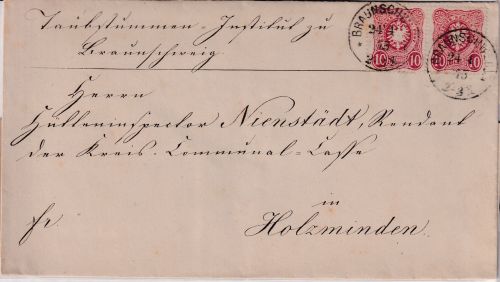 Taubstummen-Institut zu
Braunschweig
BRAUNSCH
24
2-3
10 10
10 10
BRAUNSCHW
24
2-3
Herrn
Hütteninspector Nienstädt, Rendant
der Kreis-Communal-Casse
fr.
in
Holzminden.